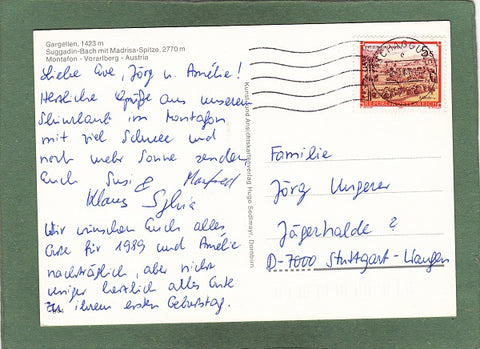 Gargellen, 1423 m
Suggadin-Bach mit Madrisa-Spitze, 2770 m
Montafon - Vorarlberg - Austria
Liebe Eve, Jörg u. Amélie!
Herzliche Grüße aus unserem
Skiurlaub im Montafon
mit viel Schnee und
noch mehr Sonne senden
Euch Susi & Manfred
Klaus Sylvia
Wir wünschen Euch alles
Gute für 1989 und Amélie
nachträglich, aber nicht
weniger herzlich alles Gute
zu ihrem ersten Geburtstag.
Kunst- und Ansichtskartenverlag Hugo Dornbirn
TSCHAGGUNS
REPUBLIK ÖSTERREICH
Familie
Jörg Ungerer
Jägerhalde 2
D-7000 Stuttgart-Wangen